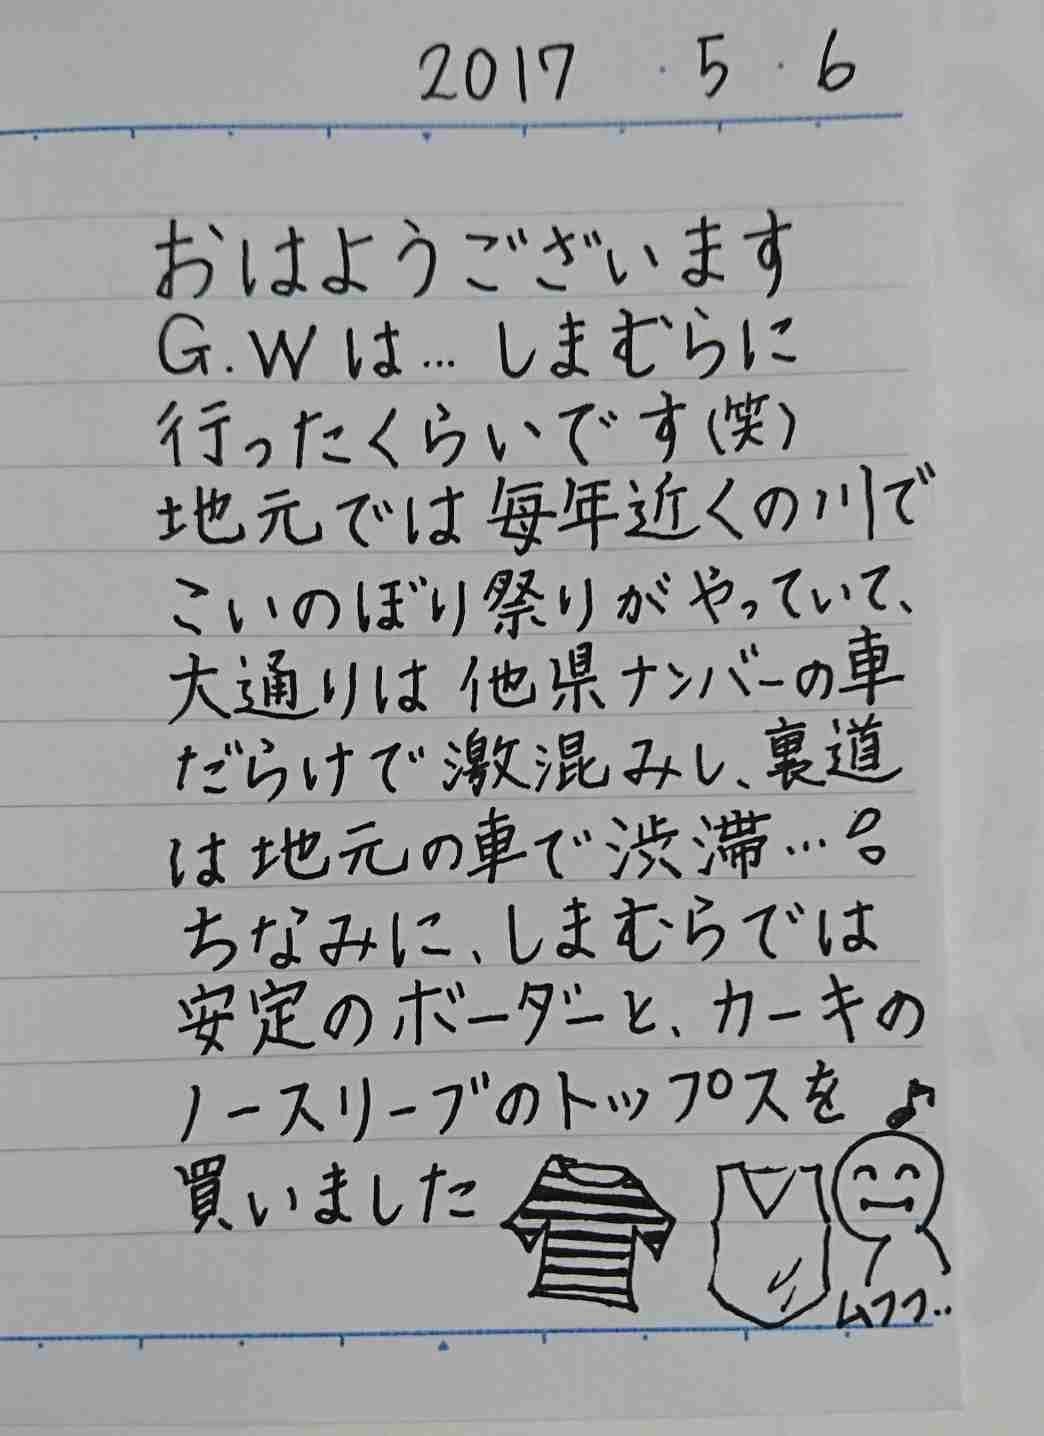 2017 ・5・6
おはようございます
G.Wは…しまむらに
行ったくらいです(笑)
地元では毎年近くの川で
こいのぼり祭りがやっていて、
大通りは他県ナンバーの車
だらけで激混みし、裏道
は地元の車で渋滞…。
ちなみに、しまむらでは
安定のボーダーと、カーキの
ノースリーブのトップスを
買いました
ムフフ‥